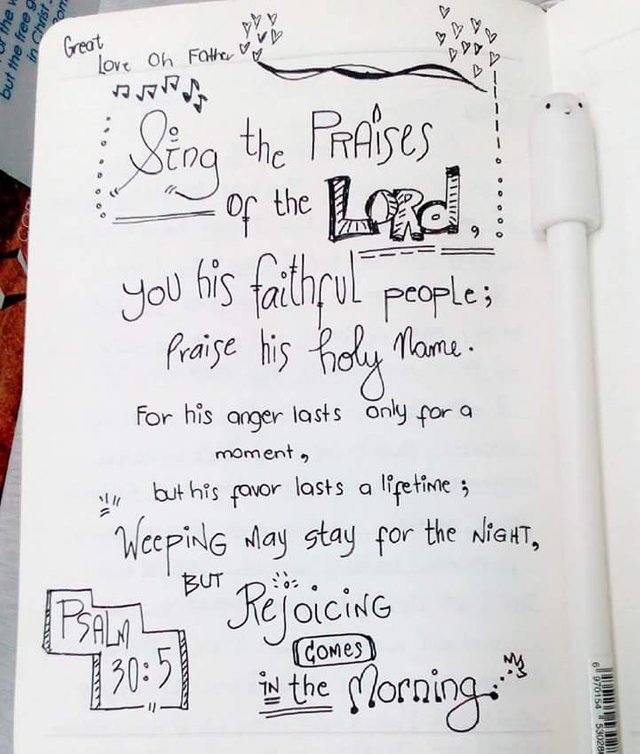 Great
Love Oh Father
Sing the PRAISES
of the LORD,
you his faithful people;
Praise his holy Name.
For his anger lasts only for a
moment,
but his favor lasts a lifetime;
Weeping May stay for the NIGHT,
BUT REJOICING
COMES
IN the Morning
PSALM
30:5
but the free g
in Christ
6 970154